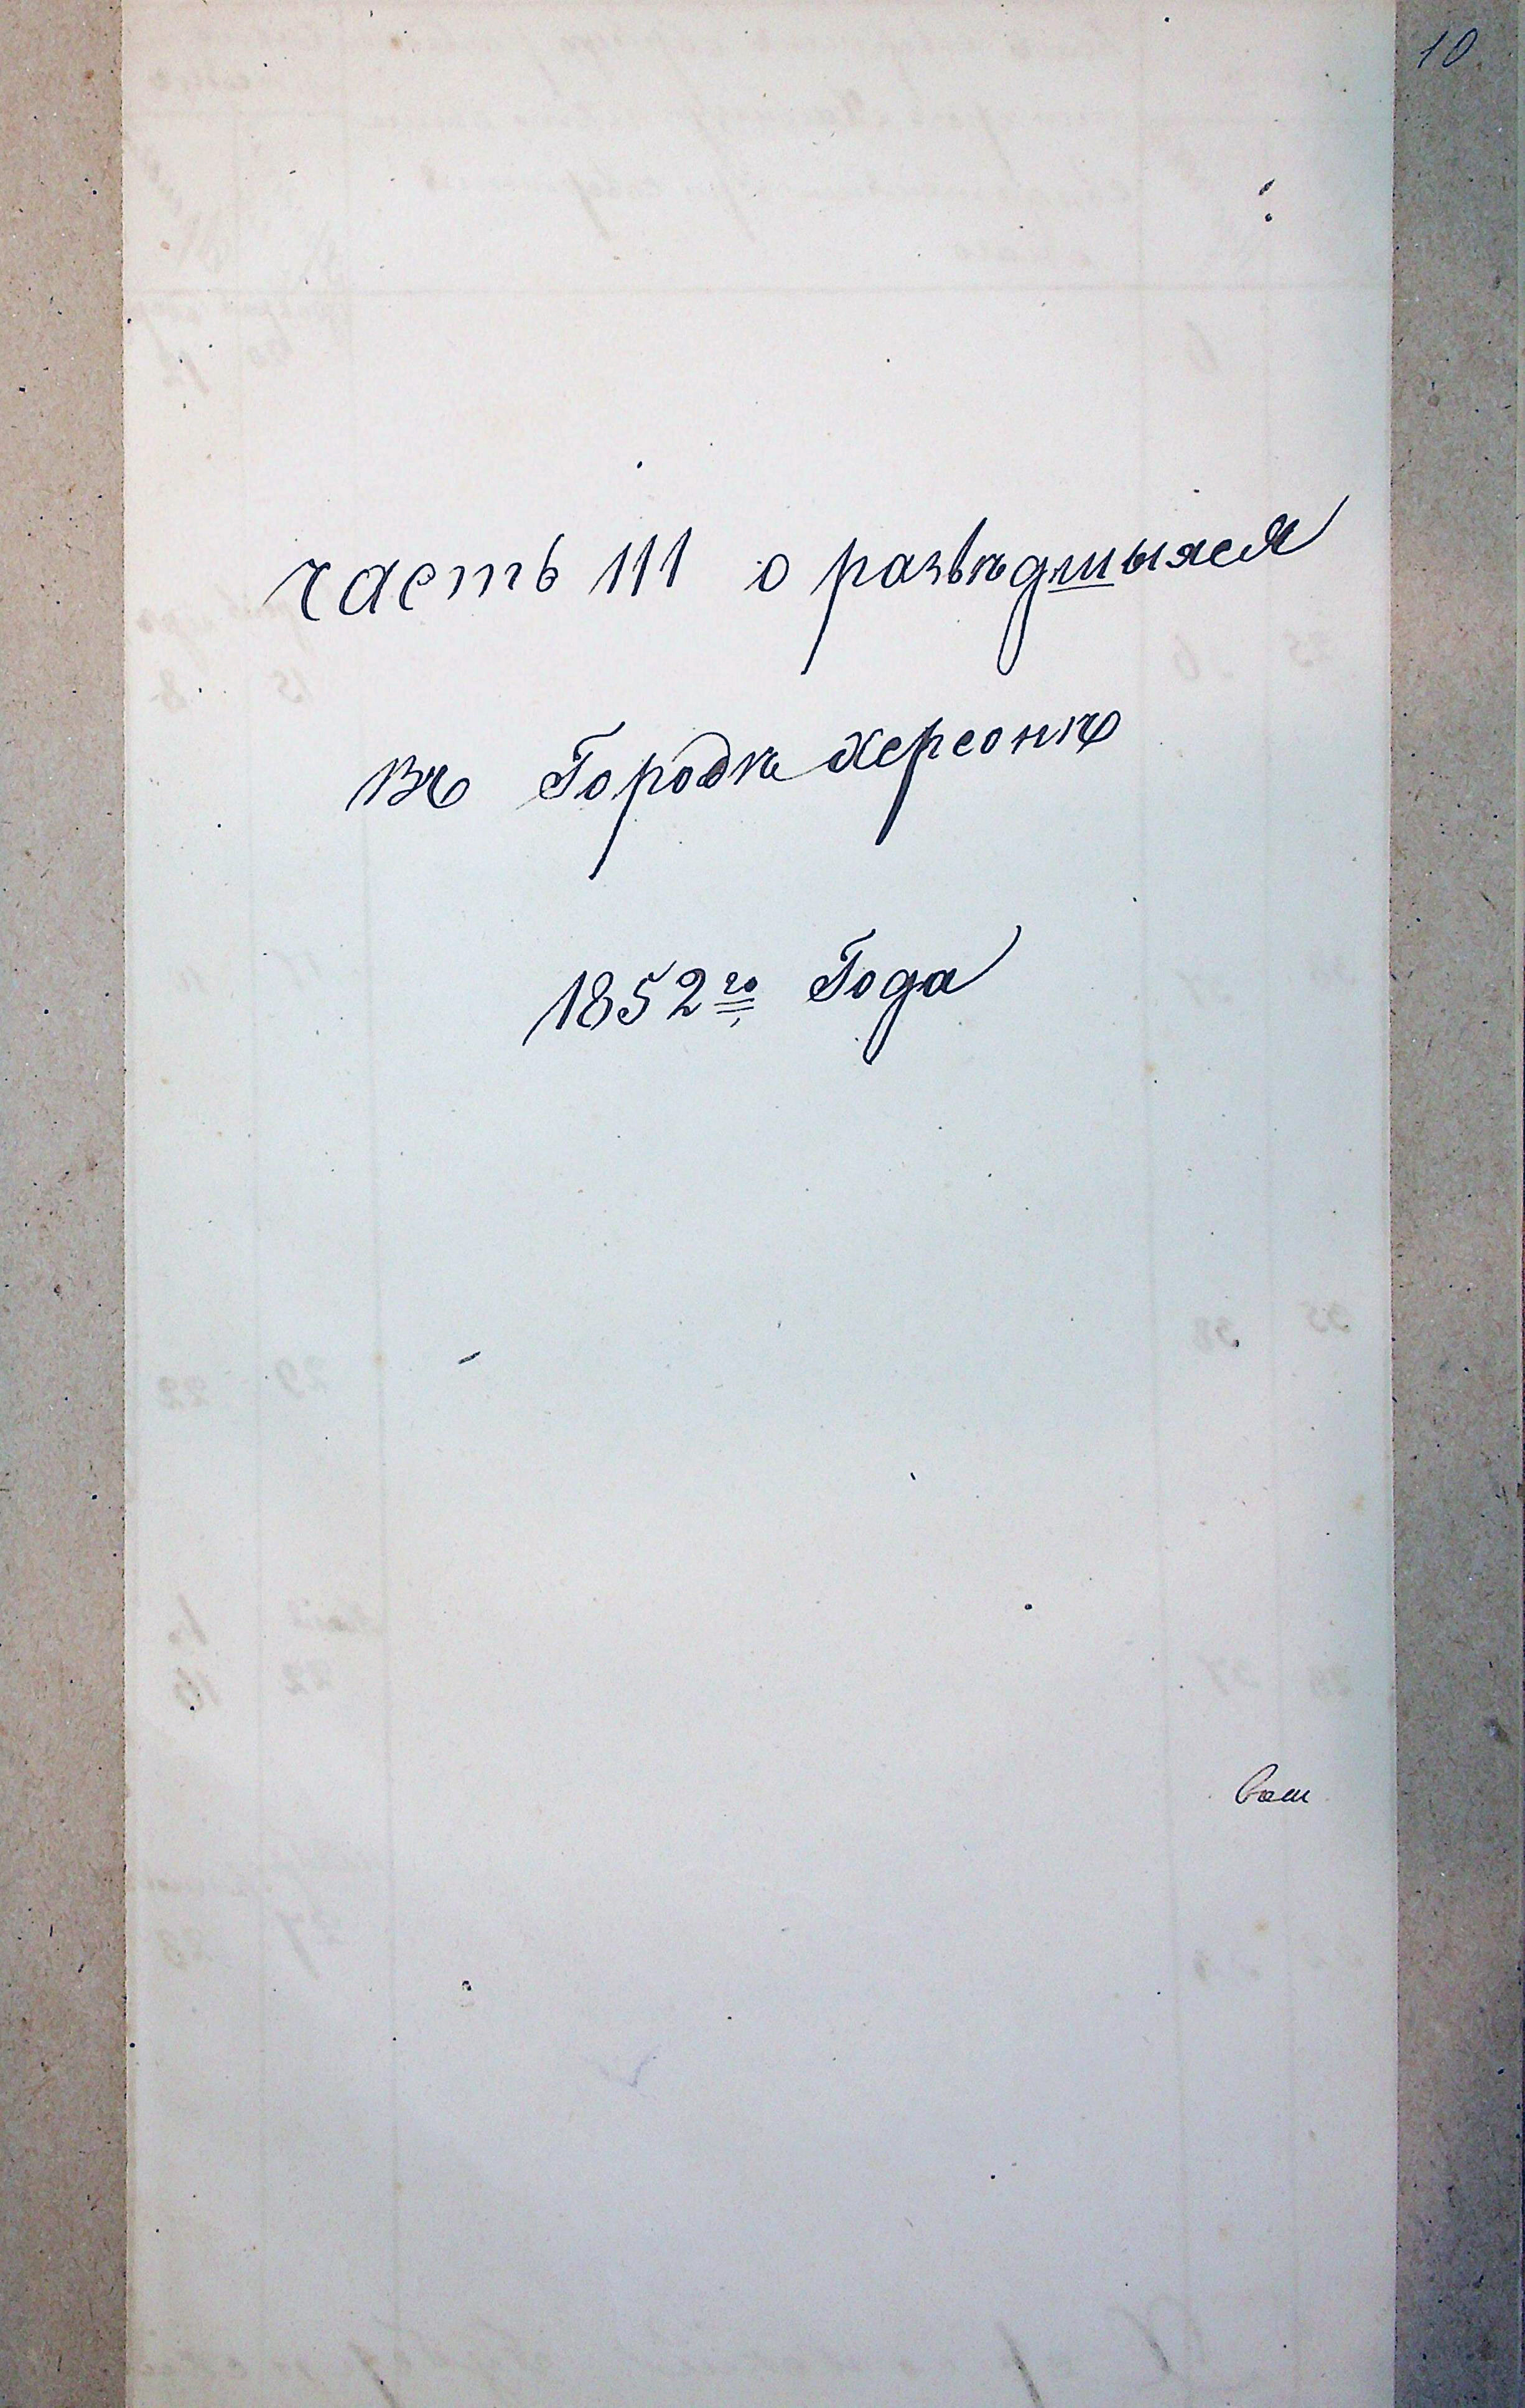 10
часть III о развѣдшыхся
въ Городѣ Херсонѣ
1852го Года